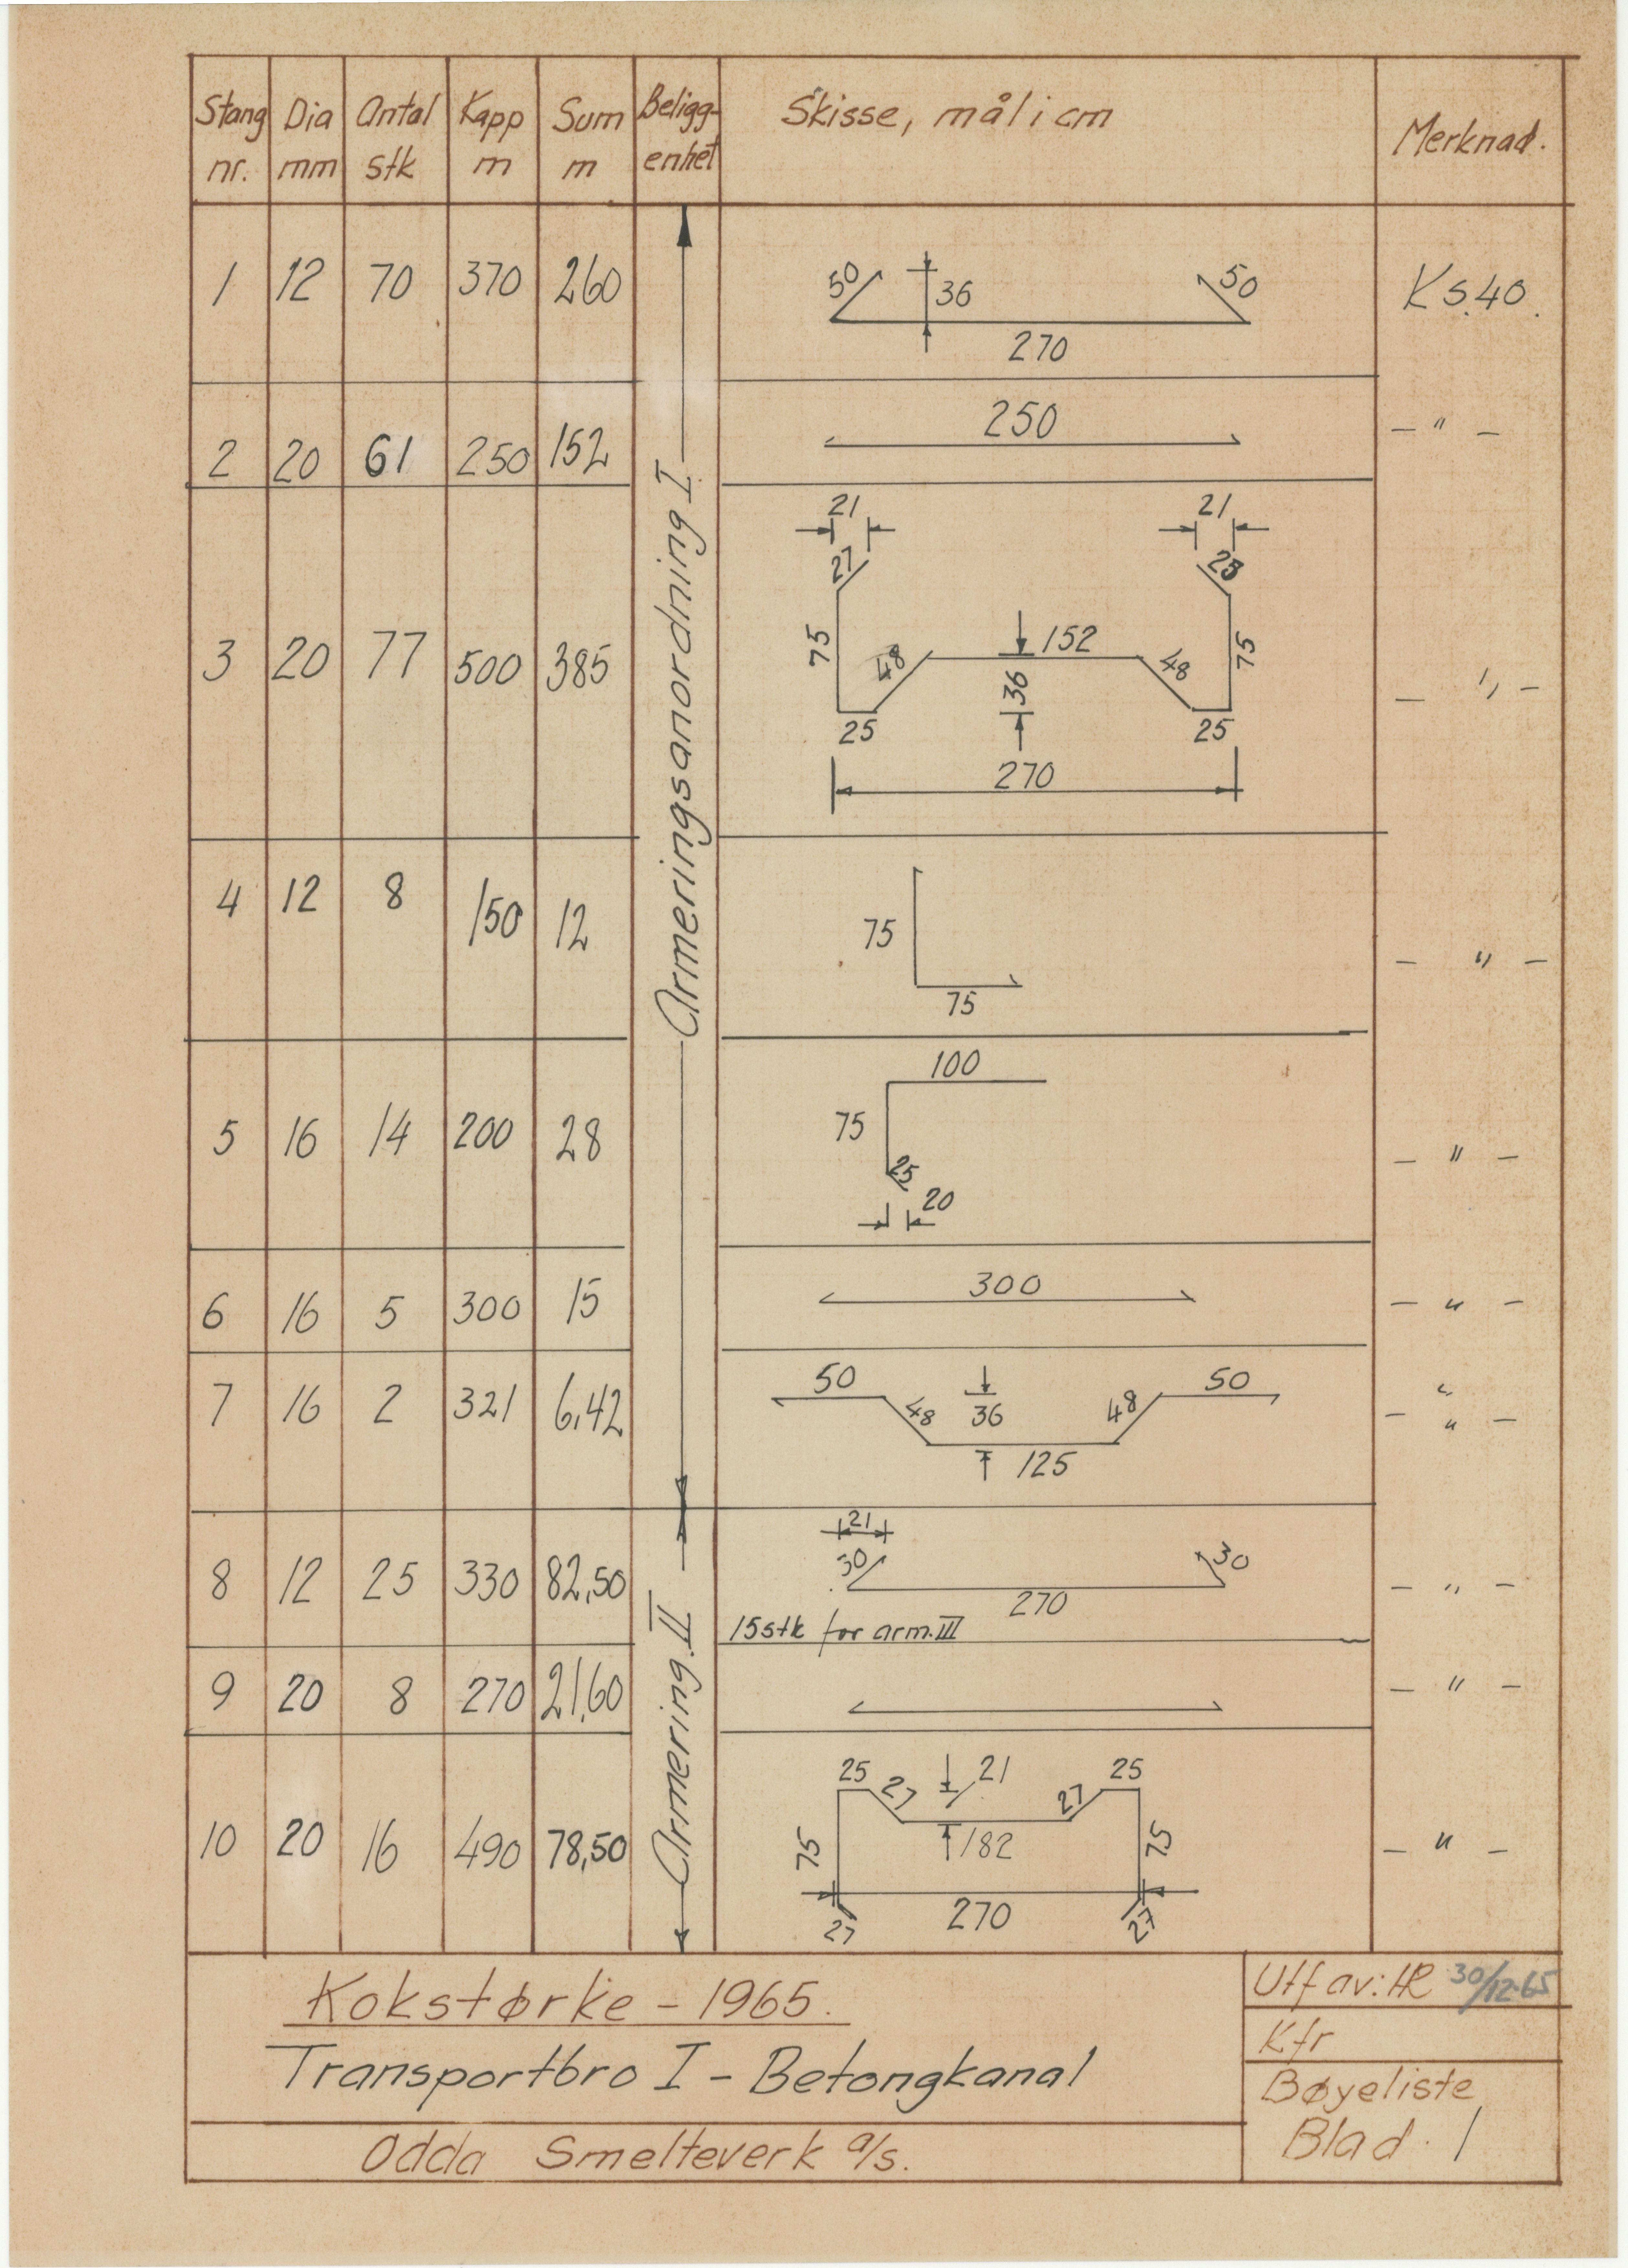 Stang nr. Dia mm Antal stk Kapp m Sum m Beligg-enhet Skisse, mål i cm Merknad.
1 12 70 370 260 50 36 50 Ks.40.
270
2 20 61 250 152 250 - " -
21 21
27 25
3 20 77 500 385 75 48 152 48 75 - " -
36
25 25
270
4 12 8 150 12 75 - " -
75
100
5 16 14 200 28 75 - " -
25
20
6 16 5 300 15 300 - " -
50 50
7 16 2 321 6,42 48 36 48 - " -
125
Armeringsanordning I
21
8 12 25 330 82,50 30 30 - " -
270
15 stk for arm. III
9 20 8 270 21,60 - " -
25 27 21 27 25
10 20 16 490 78,50 75 182 75 - " -
27 270 27
Armering. II
Kokstørke - 1965.
Transportbro I - Betongkanal
Odda Smelteverk a/s.
Utf av: HR 30/12-65
Kfr
Bøyeliste
Blad. 1